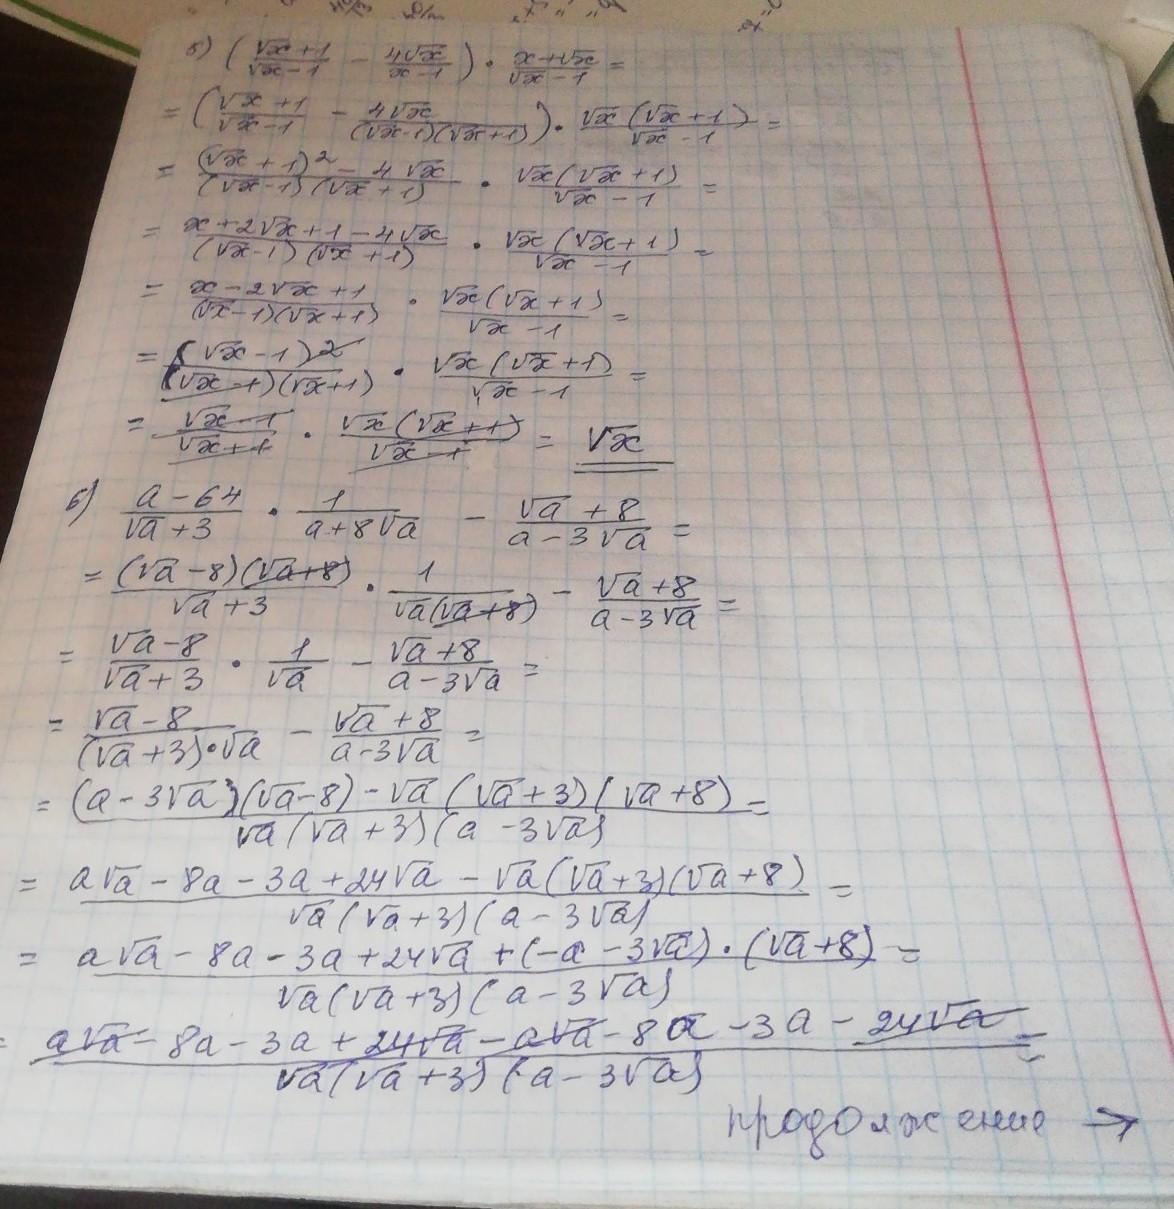 б) ( (√x+1)/(√x-1) - (4√x)/(x-1) ) · (x+√x)/(√x-1) =
= ( (√x+1)/(√x-1) - (4√x)/((√x-1)(√x+1)) ) · (√x(√x+1))/(√x-1) =
= ((√x+1)² - 4√x)/((√x-1)(√x+1)) · (√x(√x+1))/(√x-1) =
= (x+2√x+1-4√x)/((√x-1)(√x+1)) · (√x(√x+1))/(√x-1) =
= (x-2√x+1)/((√x-1)(√x+1)) · (√x(√x+1))/(√x-1) =
= (√x-1)²/((√x-1)(√x+1)) · (√x(√x+1))/(√x-1) =
= (√x-1)/(√x+1) · (√x(√x+1))/(√x-1) = √x
б) (a-64)/(√a+3) · 1/(a+8√a) - (√a+8)/(a-3√a) =
= ((√a-8)(√a+8))/(√a+3) · 1/(√a(√a+8)) - (√a+8)/(a-3√a) =
= (√a-8)/(√a+3) · 1/√a - (√a+8)/(a-3√a) =
= (√a-8)/((√a+3)·√a) - (√a+8)/(a-3√a) =
= ((a-3√a)(√a-8)-√a(√a+3)(√a+8))/(√a(√a+3)(a-3√a)) =
= (a√a-8a-3a+24√a-√a(√a+3)(√a+8))/(√a(√a+3)(a-3√a)) =
= (a√a-8a-3a+24√a+(-a-3√a)·(√a+8))/(√a(√a+3)(a-3√a)) =
= (a√a-8a-3a+24√a-a√a-8a-3a-24√a)/(√a(√a+3)(a-3√a)) =
продолжение →